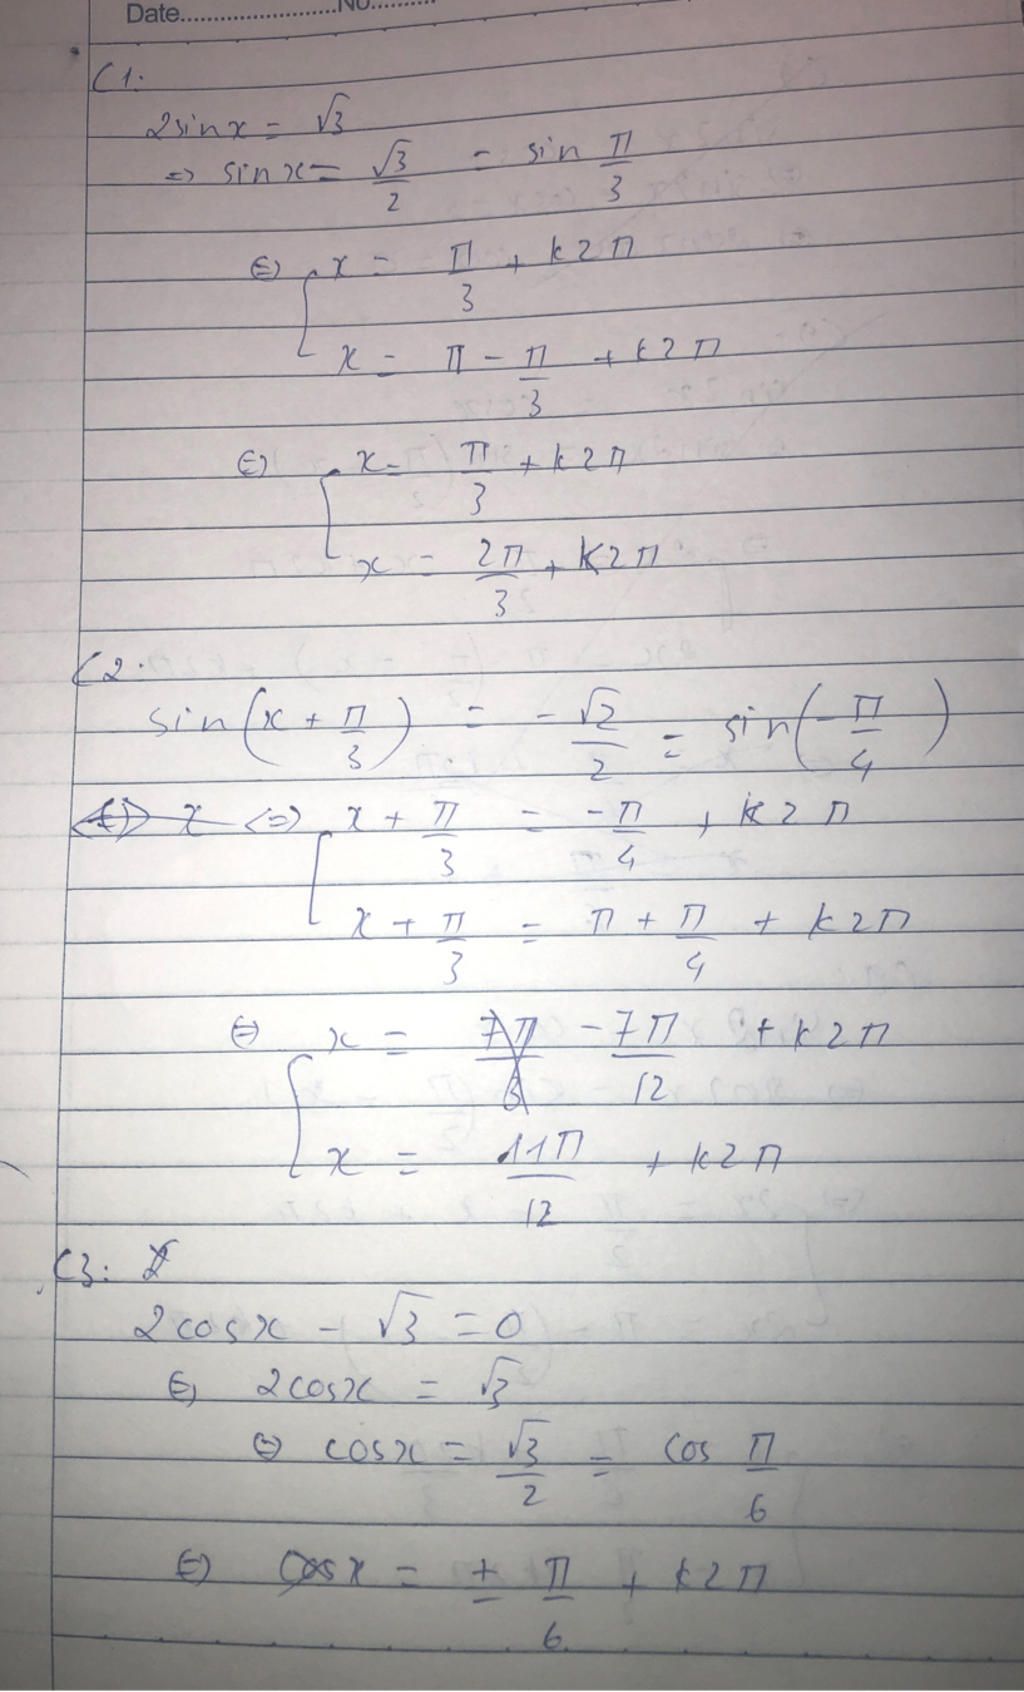 Date..........................No...........
C1:
2sinx = √3
=> sinx = √3/2 = sin π/3
⇔ [ x = π/3 + k2π
x = π - π/3 + k2π
⇔ [ x = π/3 + k2π
x = 2π/3 + k2π
C2:
sin(x + π/3) = -√2/2 = sin(-π/4)
⇔ x ⇔ [ x + π/3 = -π/4 + k2π
x + π/3 = π + π/4 + k2π
⇔ [ x = -7π/12 + k2π
x = 11π/12 + k2π
C3:
2cosx - √3 = 0
⇔ 2cosx = √3
⇔ cosx = √3/2 = cos π/6
⇔ x = ± π/6 + k2π